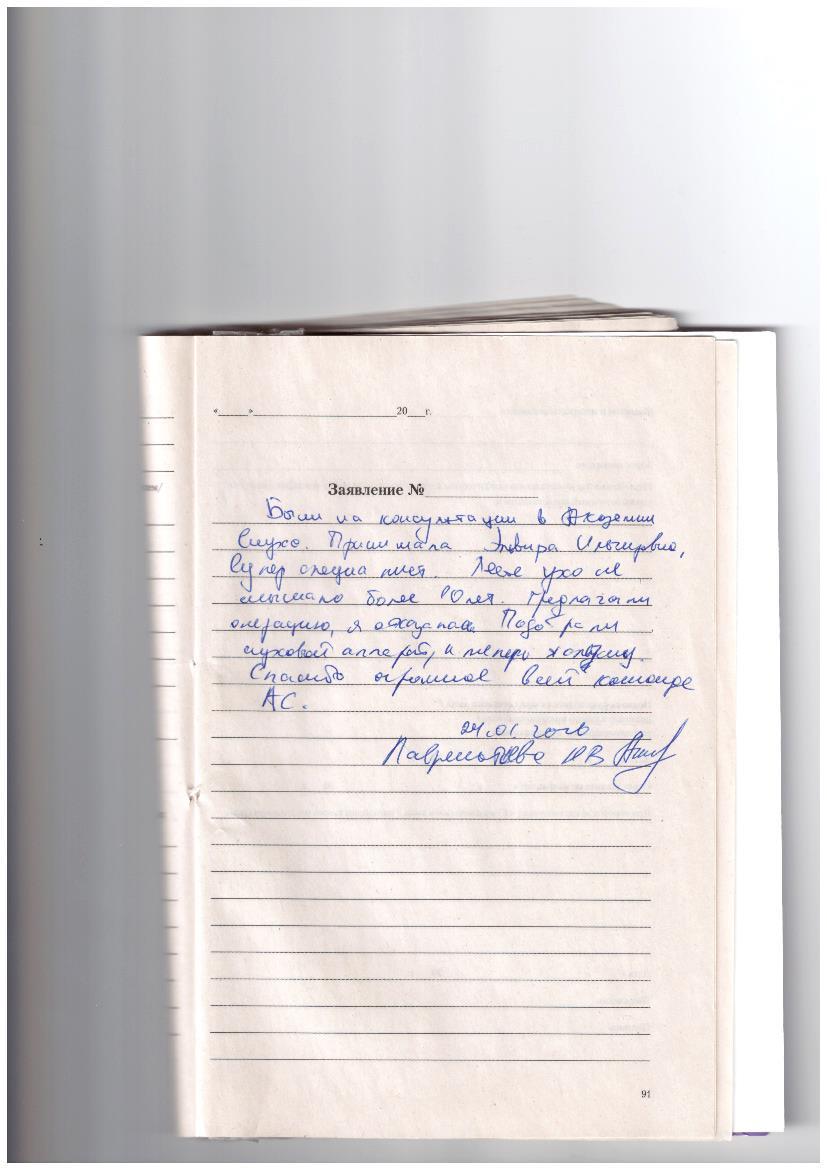 «____»____________________20___г.
Заявление №______________
Были на консультации в Академии
Слуха. Принимала Эльвира Ильгировна,
Супер специалист. Левое ухо не
слышало более 10 лет. Предлагали
операцию, я отказалась. Подобрали
слуховой аппарат, и теперь я слышу.
Спасибо огромное всей команде
АС.
24.01.2020
Лаврентьева НВ
91